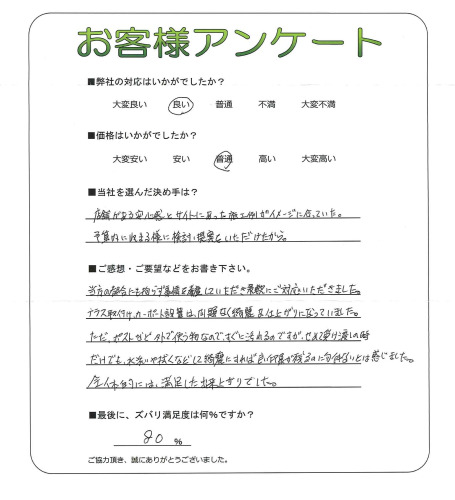 お客様アンケート
■弊社の対応はいかがでしたか？
大変良い 良い 普通 不満 大変不満
■価格はいかがでしたか？
大変安い 安い 普通 高い 大変高い
■当社を選んだ決め手は？
店舗がある安心感とサイトにあった施工例がイメージに合っていた。
予算内に収まる様に検討、提案をいただけたから。
■ご感想・ご要望などをお書き下さい。
当方の都合にも拘らず事情を考慮していただき柔軟にご対応いただきました。
テラス取付け、カーポート設置は、問題なく綺麗な仕上がりになっていました。
ただ、ポストなど外で使う物なので、すぐに汚れるのですが、せめて受け渡しの時
だけでも、水洗いや拭くなどして綺麗にすれば良い印象が残るのに勿体ないとは感じました。
全体的には、満足した出来上りでした。
■最後に、ズバリ満足度は何％ですか？
80 ％
ご協力頂き、誠にありがとうございました。